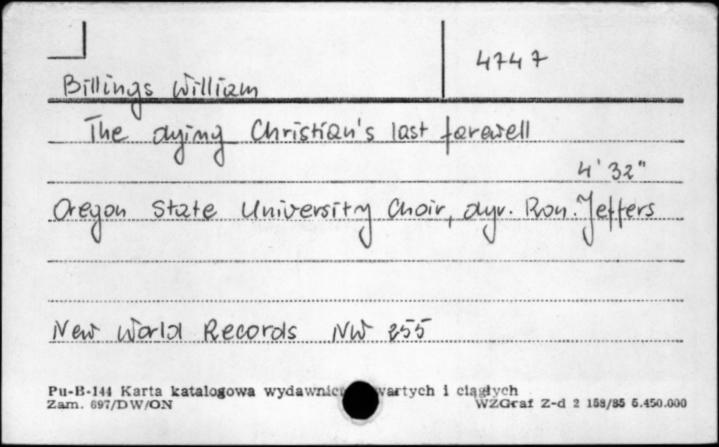 4747
Billings William
The dying Christian's last farewell
4'32"
Oregon State University Choir, dyr. Ron. Jeffers
New World Records NW 255
Pu-B-144 Karta katalogowa wydawnict wartych i ciągłych
Zam. 697/DW/ON WZGraf Z-d 2 158/85 5.450.000